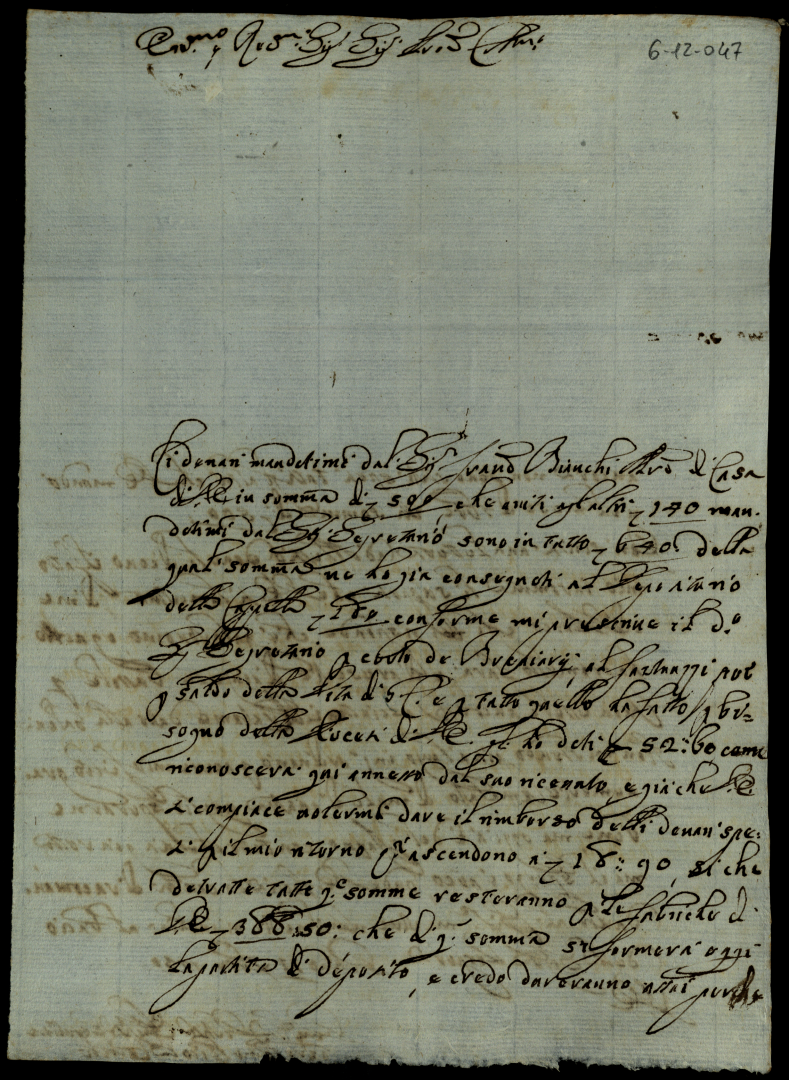 Em.mo Rev.mo Sig.r Sig.r Pron. Col.mo
6-12-047
Li denari mandatimi dal Sig.r Franc.o Bianchi Mro di Casa
di V.E. in somma di 500 che uniti gl'altri 140 man-
datimi dal Sig.r Segretario sono in tutto 640 della
qual somma ne ho gia consegnati al Depositario
della Cappella 180 conforme mi prescrive il d.o
Sig.r Segretario p costo de Breviarij, al poi
p saldo della lista di e p tutto quello ha fatto p bi=
sogno della di V.E. gl'ho dati 52:60 come
riconoscerà qui annesso dal suo ricevuto, e già che V.E.
si compiace volermi dare il rimborso delli denari spe:
si p il mio ritorno ascendono a 18:90, si che
detratte tutte q.e somme resteranno p le fabriche di
V.E. 388:50: che di q.a somma si formerà oggi
la partita di deposito, e credo dureranno assai